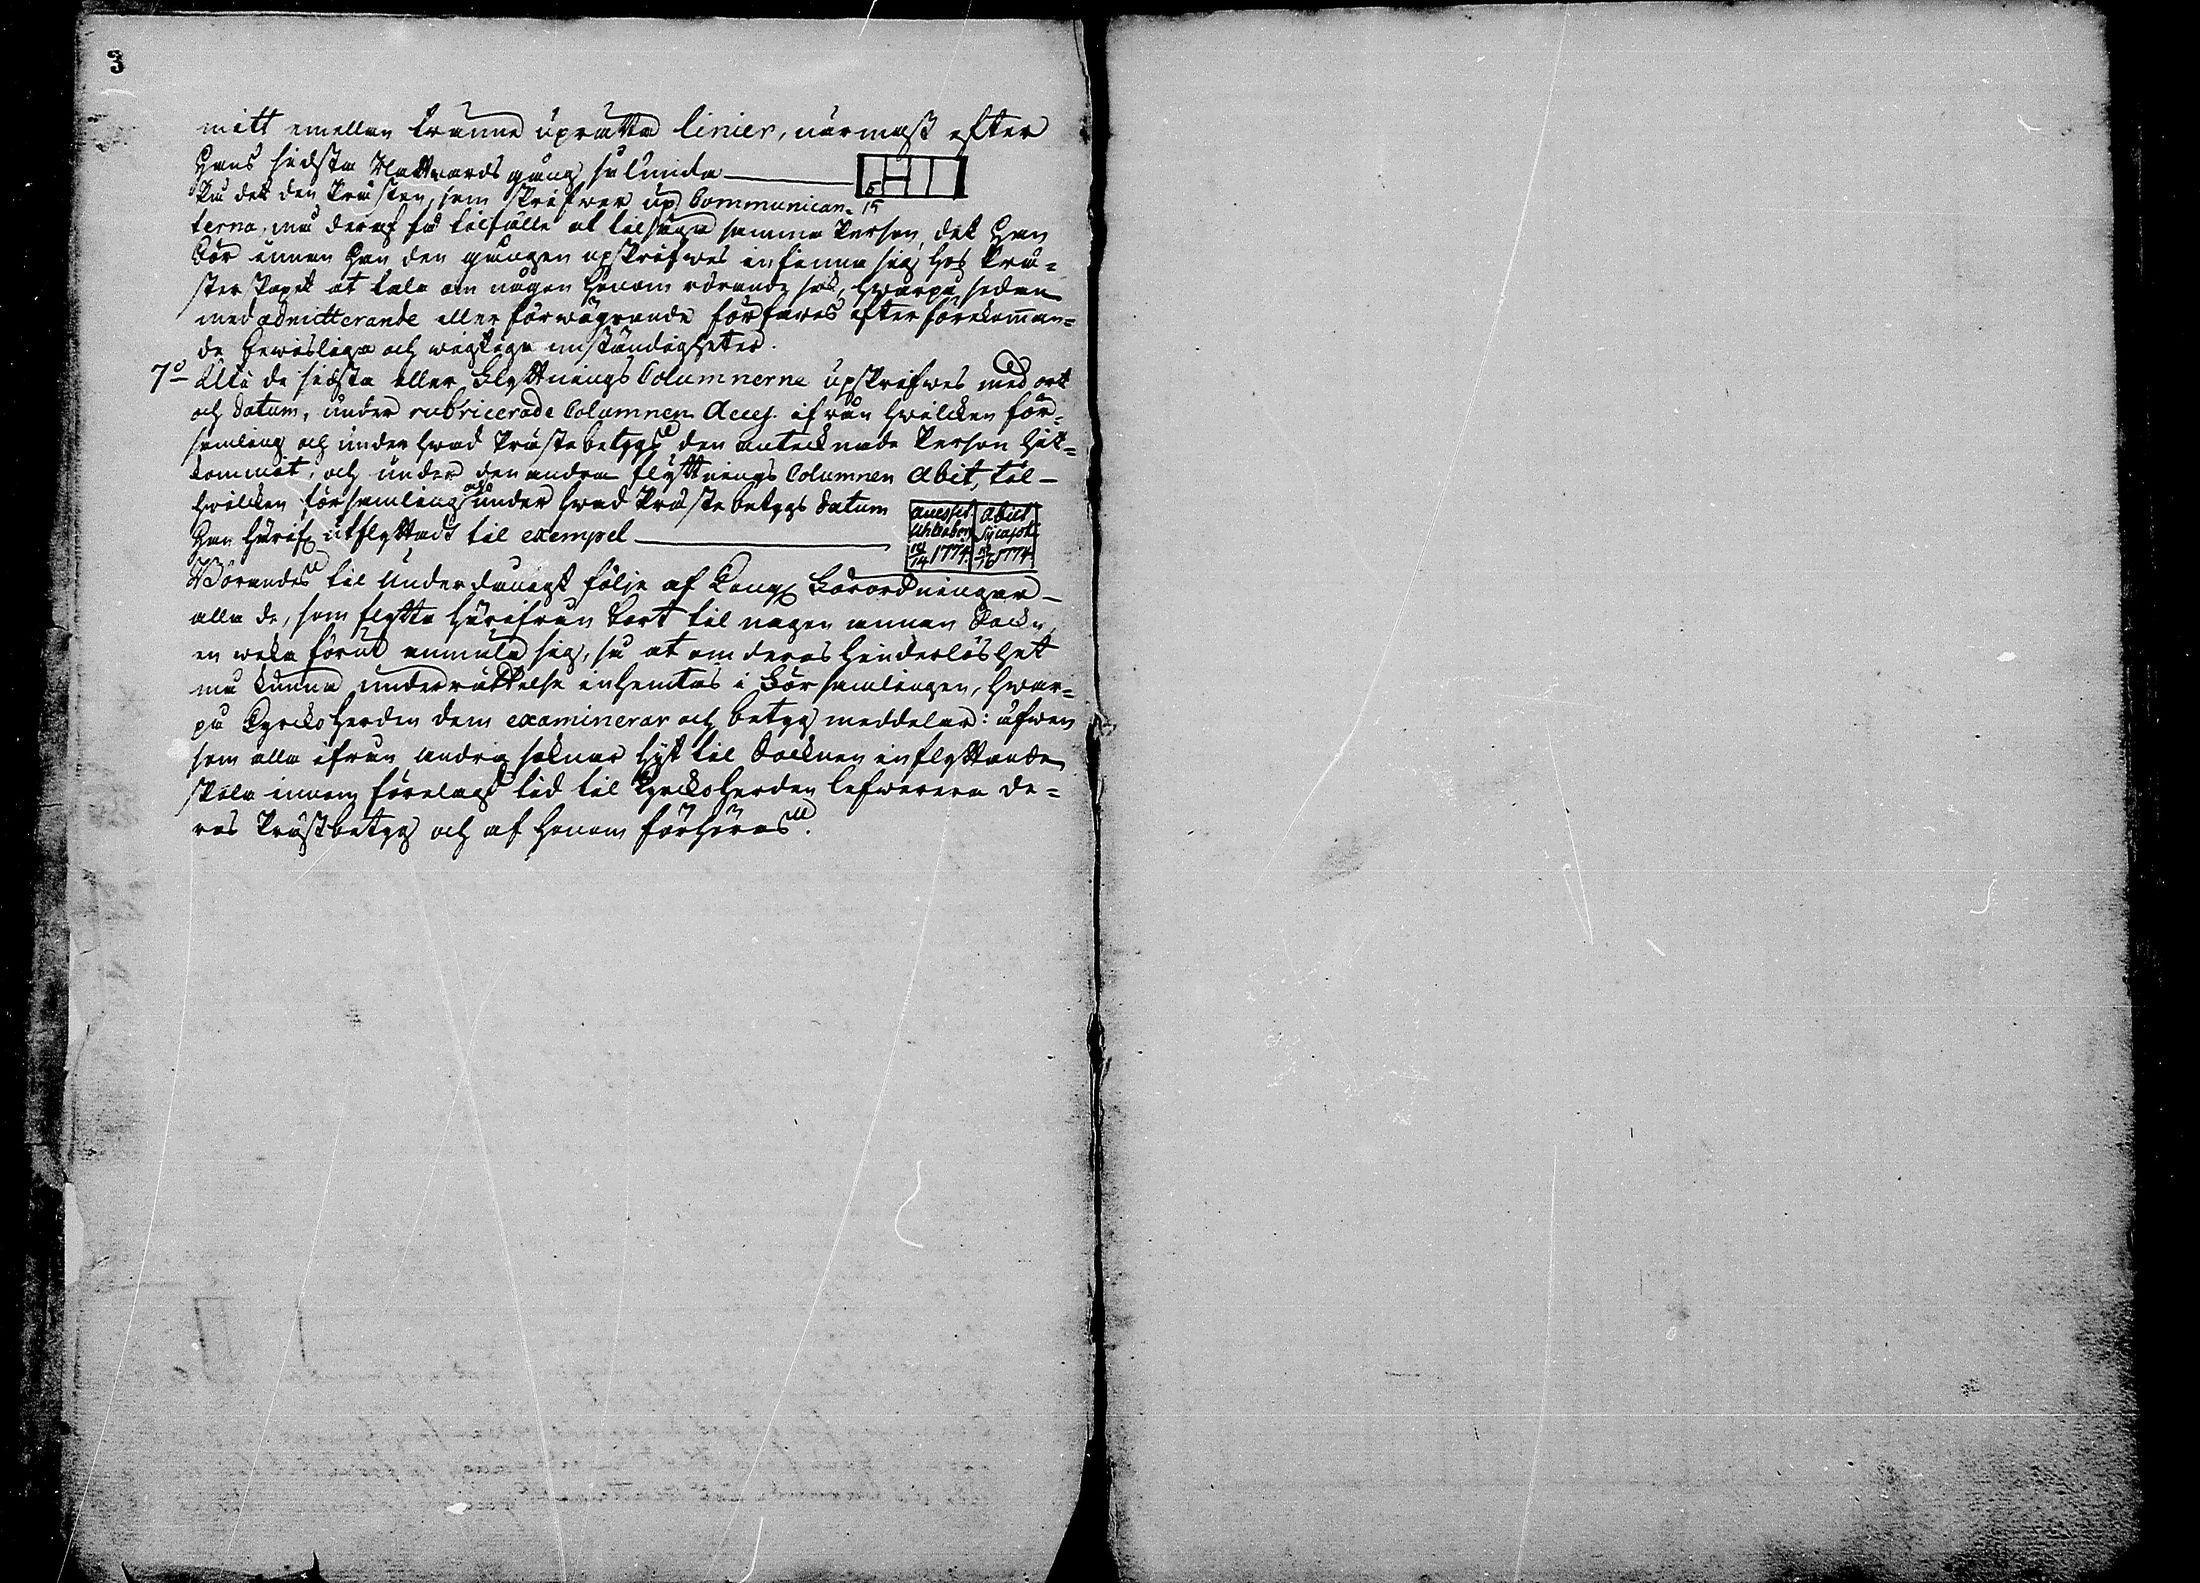 3
mitt emellan tvänne uprätta linier, närmast efter
Hans sidsta Nattvards gång sålunda
På det den Prästen, som skrifver up Communican= 15
terna, må deraf få tilfälle at tilsäga samma Person, det Han
bör innan Han den gången upskrifves infinna sig hos Prä=
sterskapet at tala om någon Honom rörande sak, hvarpå sedan
med admitterande eller förvägrande förfares efter förekomman=
de bevisliga och vigtiga omständigheter.
7:o Uti de sidsta eller Flyttnings Columnerne upskrifves med ort
och Datum, under rubricerade Columnen Access. ifrån hvilcken för=
samling och under hvad Prästebetygs den antecknade Person hit=
kommit, och under den andra flyttnings Columnen Abit, til
hvilcken församling och under hvad Prästebetygs Datum
Han härifr utflyttadt til exempel
accessit abiit
Uhleaborg Sijcajoki
1774 1774
Börandes til Underdånigst följe af Kongl Förordningar
alla de, som flytta härifrån bort til någon annan Sockn
en veka förut anmäla sig, så at om deras hinderlöshet
må kunna underrättelse inhemtas i Församlingen, hvar=
på Kyrckoherden dem examinerar och betyg meddelar: äfven
som alla ifrån andra soknar hijt til Socknen inflyttande
skola innom förelagd tid til Kyrckoherden lefverera de=
ras Prästbetyg och af honom förhöras.